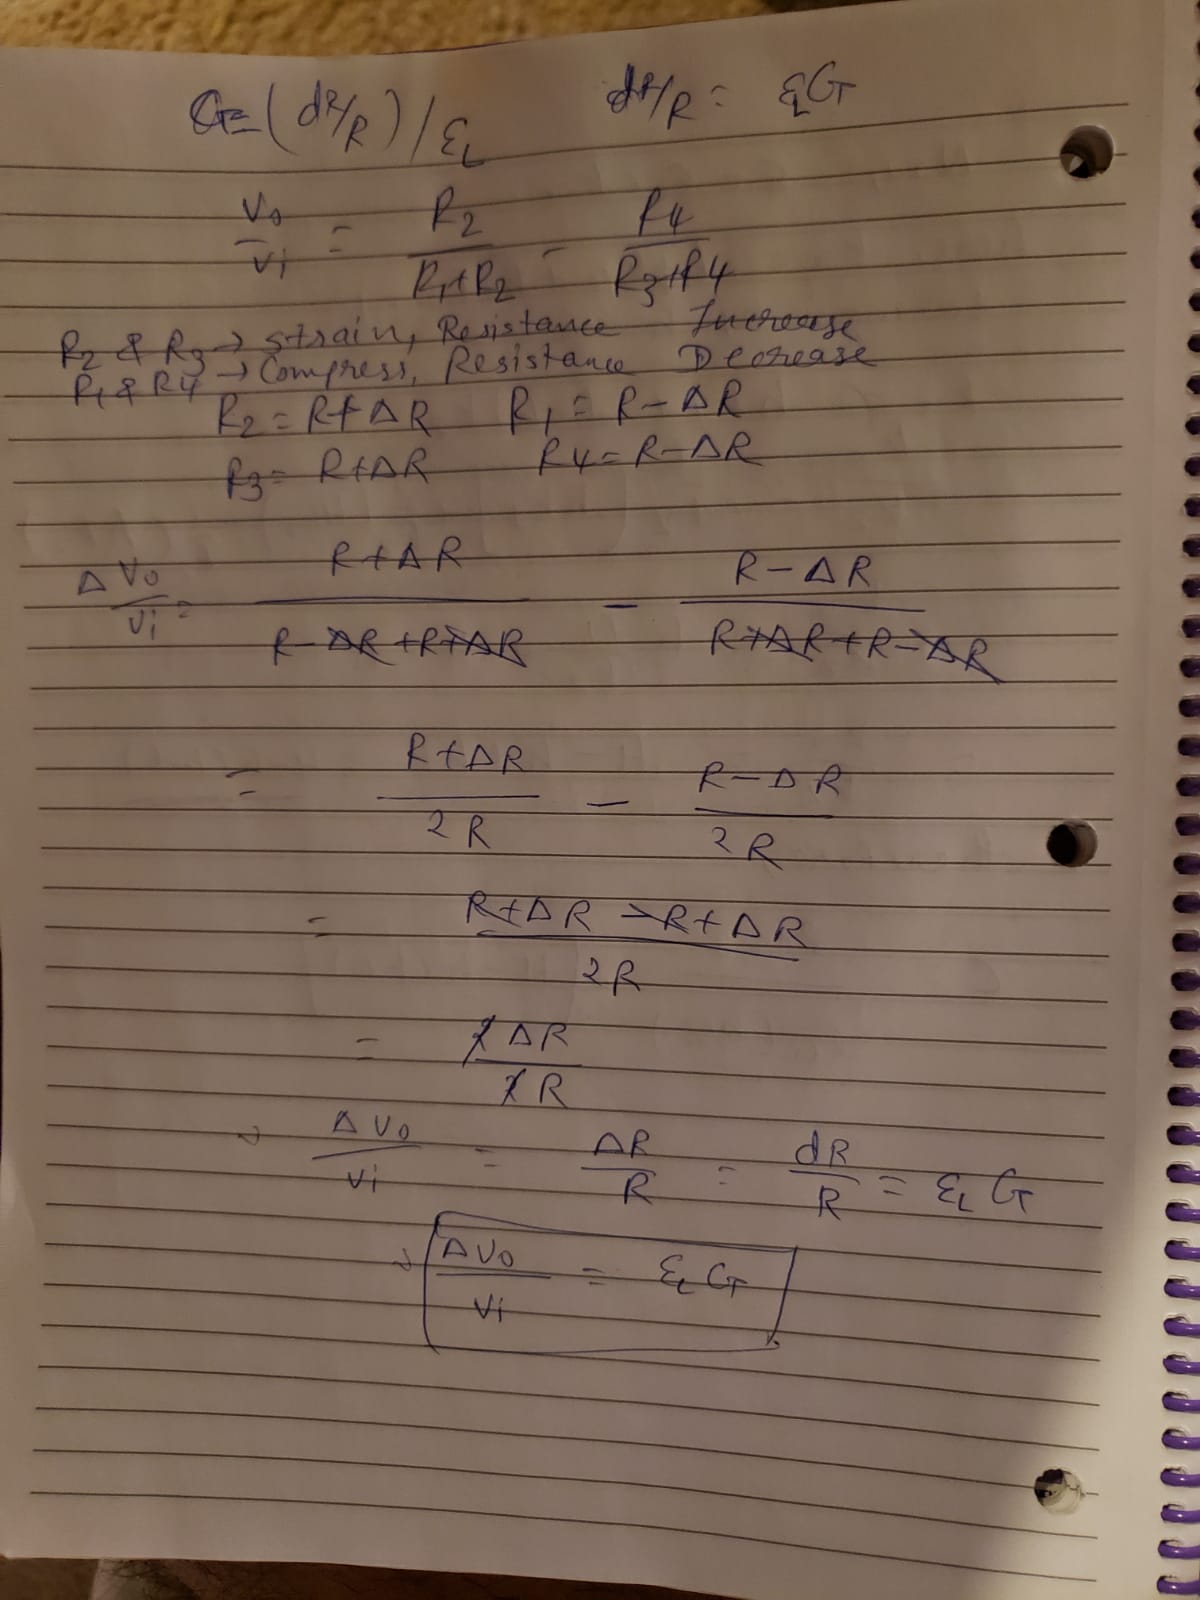 G = (dR/R)/ε_L    dR/R = ε_L G
Vo/Vi = R2/(R1+R2) - R4/(R3+R4)
R2 & R3 → strain, Resistance Increase
R1 & R4 → Compress, Resistance Decrease
R2 = R+ΔR    R1 = R-ΔR
R3 = R+ΔR    R4 = R-ΔR
ΔVo/Vi = (R+ΔR)/(R-ΔR+R+ΔR) - (R-ΔR)/(R+ΔR+R-ΔR)
= (R+ΔR)/2R - (R-ΔR)/2R
= (R+ΔR-R+ΔR)/2R
= 2ΔR/2R
→ ΔVo/Vi = ΔR/R = dR/R = ε_L G
→ ΔVo/Vi = ε_L G